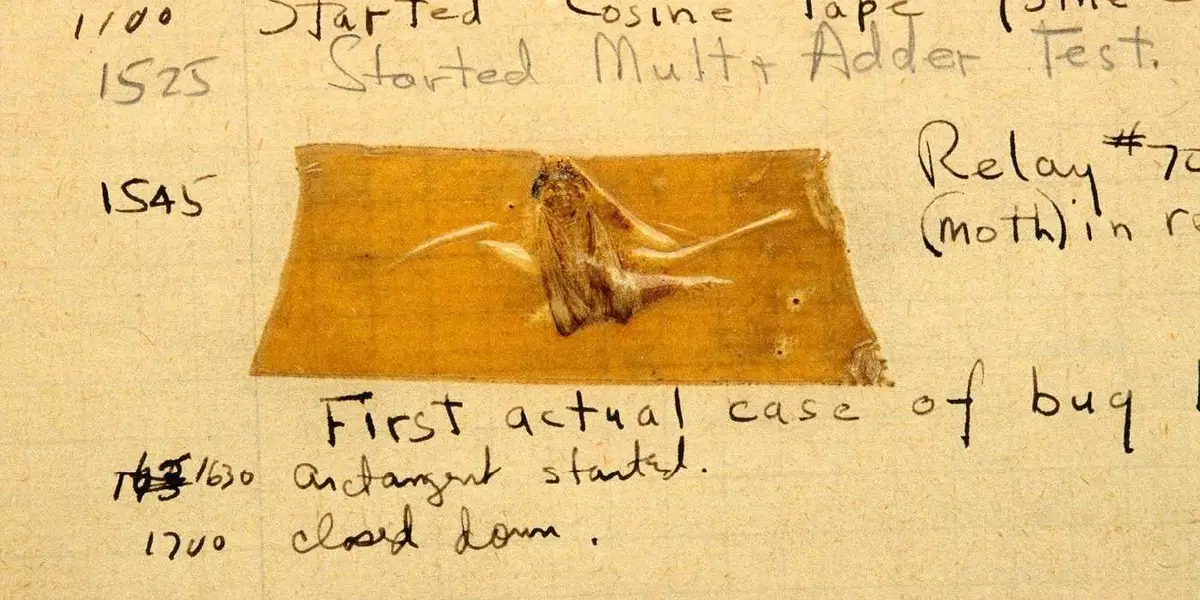 1100 Started Cosine Tape (Sine
1525 Started Mult+ Adder Test.
1545 Relay #70
(moth) in re
First actual case of bug
1630 arctangent started.
1700 closed down.